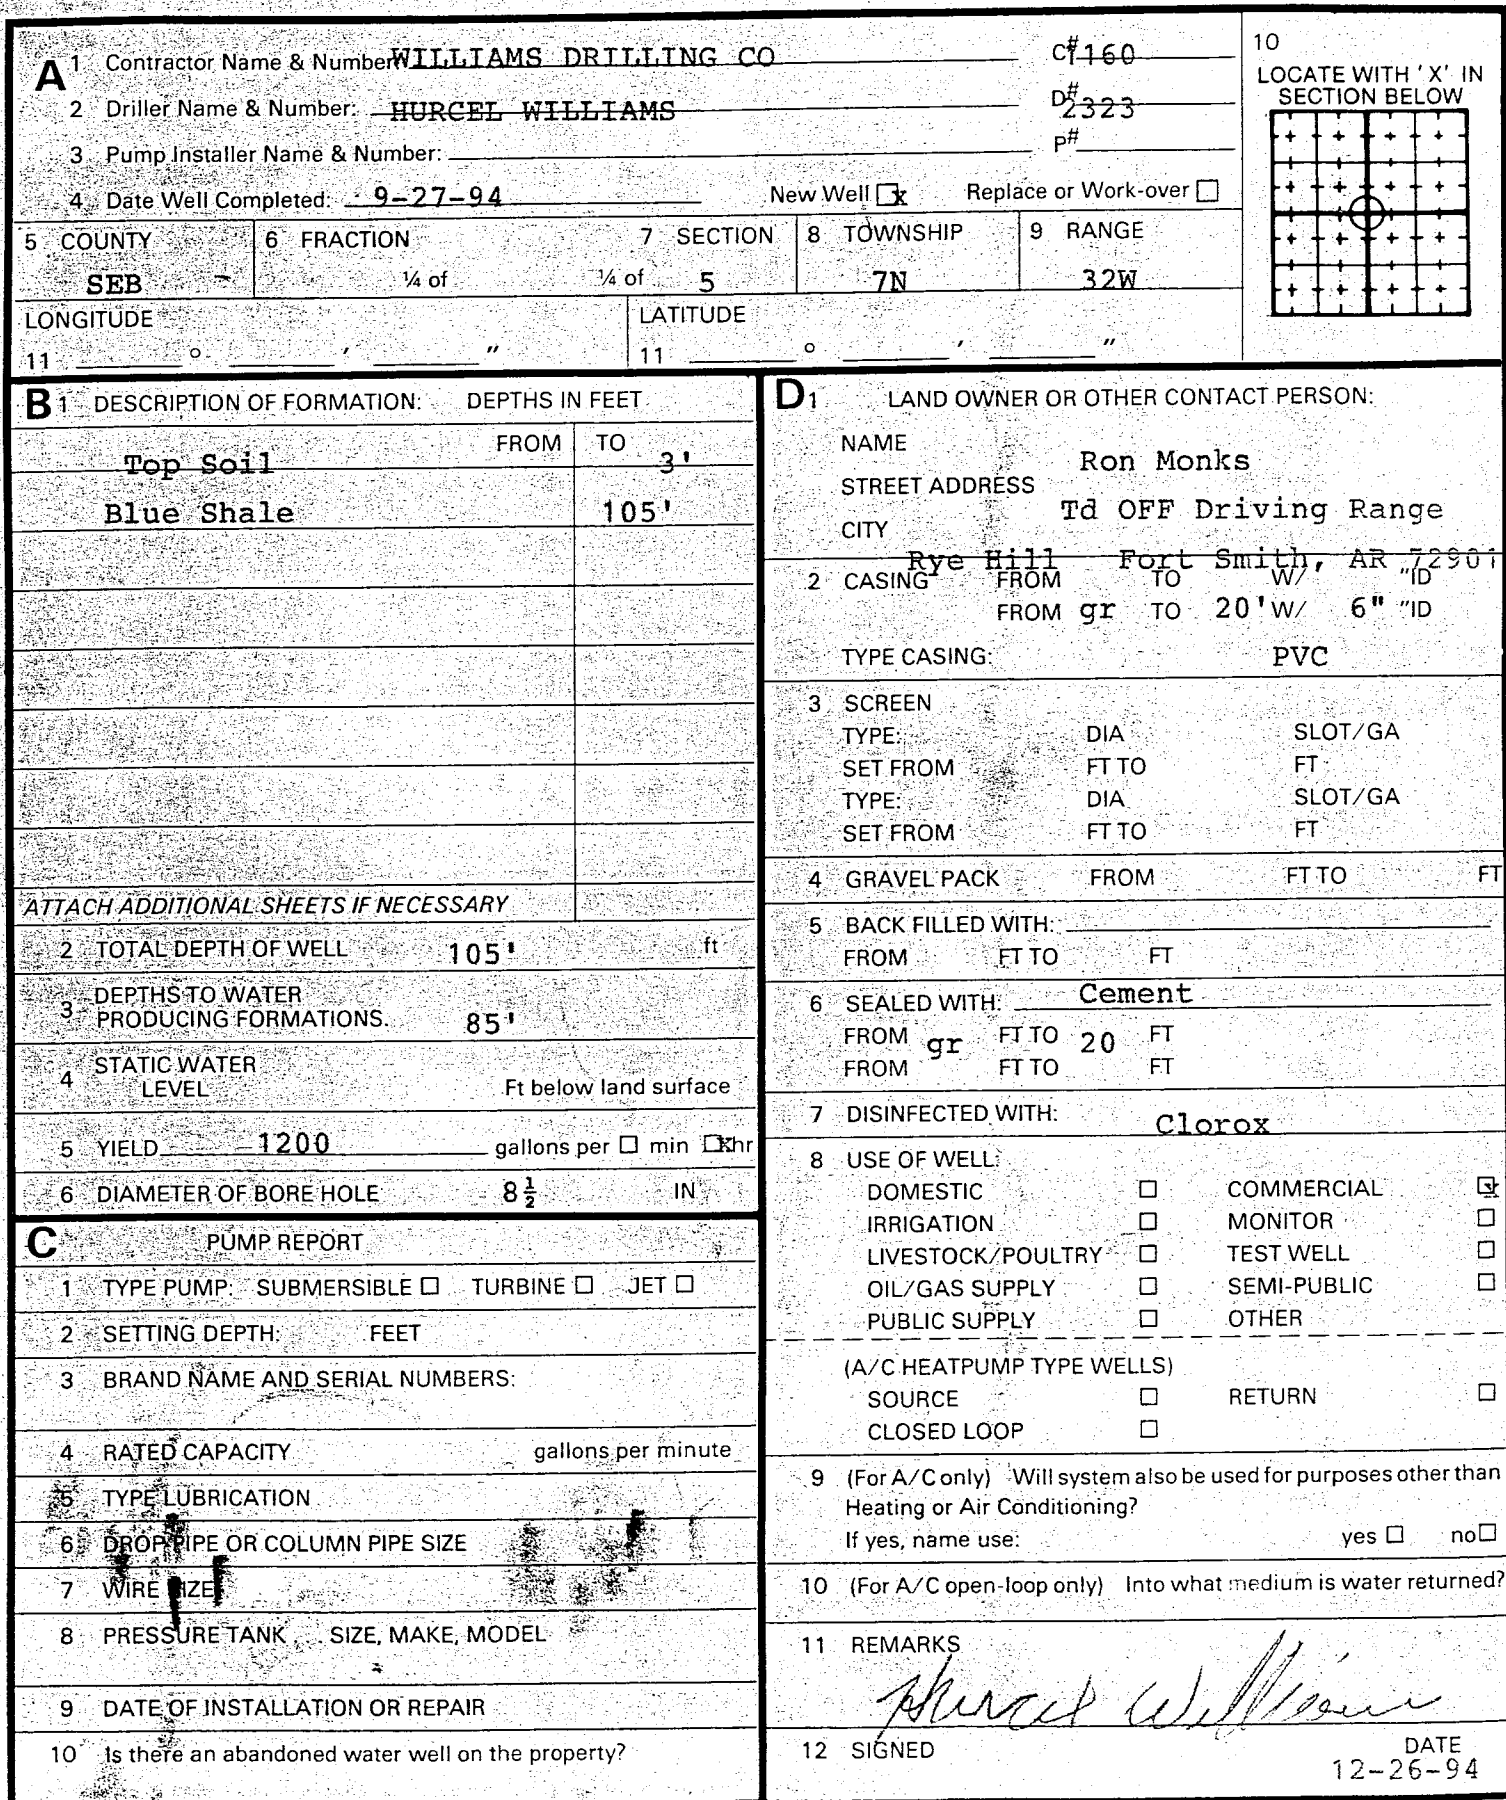 A 1 Contractor Name & Number WILLIAMS DRILLING CO C# 1160
2 Driller Name & Number: HURCEL WILLIAMS D# 2323
3 Pump Installer Name & Number: P#
4 Date Well Completed: 9-27-94 New Well ☒ Replace or Work-over ☐
10
LOCATE WITH 'X' IN
SECTION BELOW
5 COUNTY 6 FRACTION 7 SECTION 8 TOWNSHIP 9 RANGE
SEB ¼ of ¼ of 5 7N 32W
LONGITUDE LATITUDE
11 ° ′ ″ 11 ° ′ ″
B 1 DESCRIPTION OF FORMATION: DEPTHS IN FEET
FROM TO
Top Soil 3'
Blue Shale 105'
ATTACH ADDITIONAL SHEETS IF NECESSARY
2 TOTAL DEPTH OF WELL 105' ft
3 DEPTHS TO WATER
PRODUCING FORMATIONS. 85'
4 STATIC WATER
LEVEL Ft below land surface
5 YIELD 1200 gallons per ☐ min ☒ hr
6 DIAMETER OF BORE HOLE 8½ IN
C PUMP REPORT
1 TYPE PUMP: SUBMERSIBLE ☐ TURBINE ☐ JET ☐
2 SETTING DEPTH: FEET
3 BRAND NAME AND SERIAL NUMBERS:
4 RATED CAPACITY gallons per minute
5 TYPE LUBRICATION
6 DROP PIPE OR COLUMN PIPE SIZE
7 WIRE SIZE
8 PRESSURE TANK SIZE, MAKE, MODEL
9 DATE OF INSTALLATION OR REPAIR
10 Is there an abandoned water well on the property?
D 1 LAND OWNER OR OTHER CONTACT PERSON:
NAME Ron Monks
STREET ADDRESS Td OFF Driving Range
CITY
Rye Hill Fort Smith, AR 72901
2 CASING FROM TO W/ "ID
FROM gr TO 20' W/ 6" "ID
TYPE CASING: PVC
3 SCREEN
TYPE: DIA SLOT/GA
SET FROM FT TO FT
TYPE: DIA SLOT/GA
SET FROM FT TO FT
4 GRAVEL PACK FROM FT TO FT
5 BACK FILLED WITH:
FROM FT TO FT
6 SEALED WITH: Cement
FROM gr FT TO 20 FT
FROM FT TO FT
7 DISINFECTED WITH: Clorox
8 USE OF WELL:
DOMESTIC ☐ COMMERCIAL ☒
IRRIGATION ☐ MONITOR ☐
LIVESTOCK/POULTRY ☐ TEST WELL ☐
OIL/GAS SUPPLY ☐ SEMI-PUBLIC ☐
PUBLIC SUPPLY ☐ OTHER
(A/C HEATPUMP TYPE WELLS)
SOURCE ☐ RETURN ☐
CLOSED LOOP ☐
9 (For A/C only) Will system also be used for purposes other than
Heating or Air Conditioning?
If yes, name use: yes ☐ no ☐
10 (For A/C open-loop only) Into what medium is water returned?
11 REMARKS
Hurcel Williams
12 SIGNED DATE
12-26-94